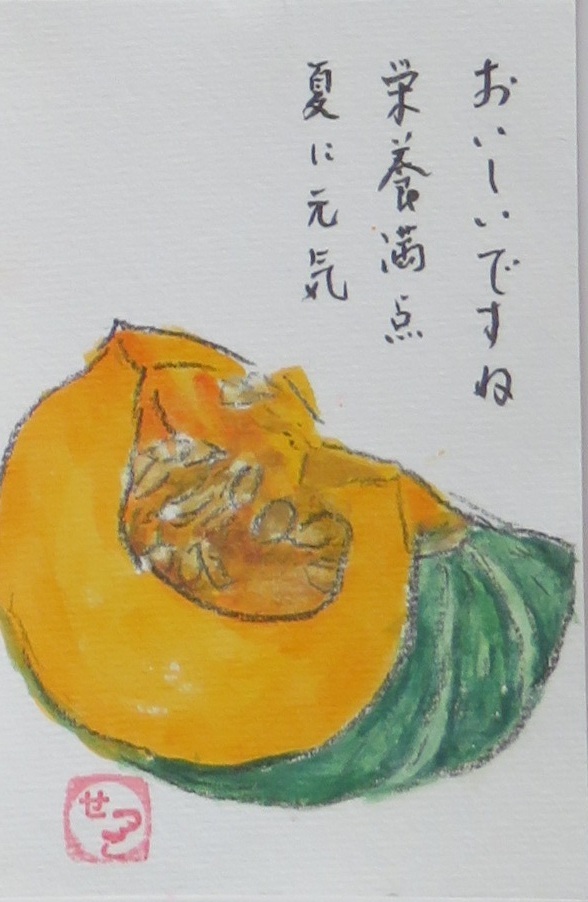 おいしいですね
栄養満点
夏に元気
せつこ